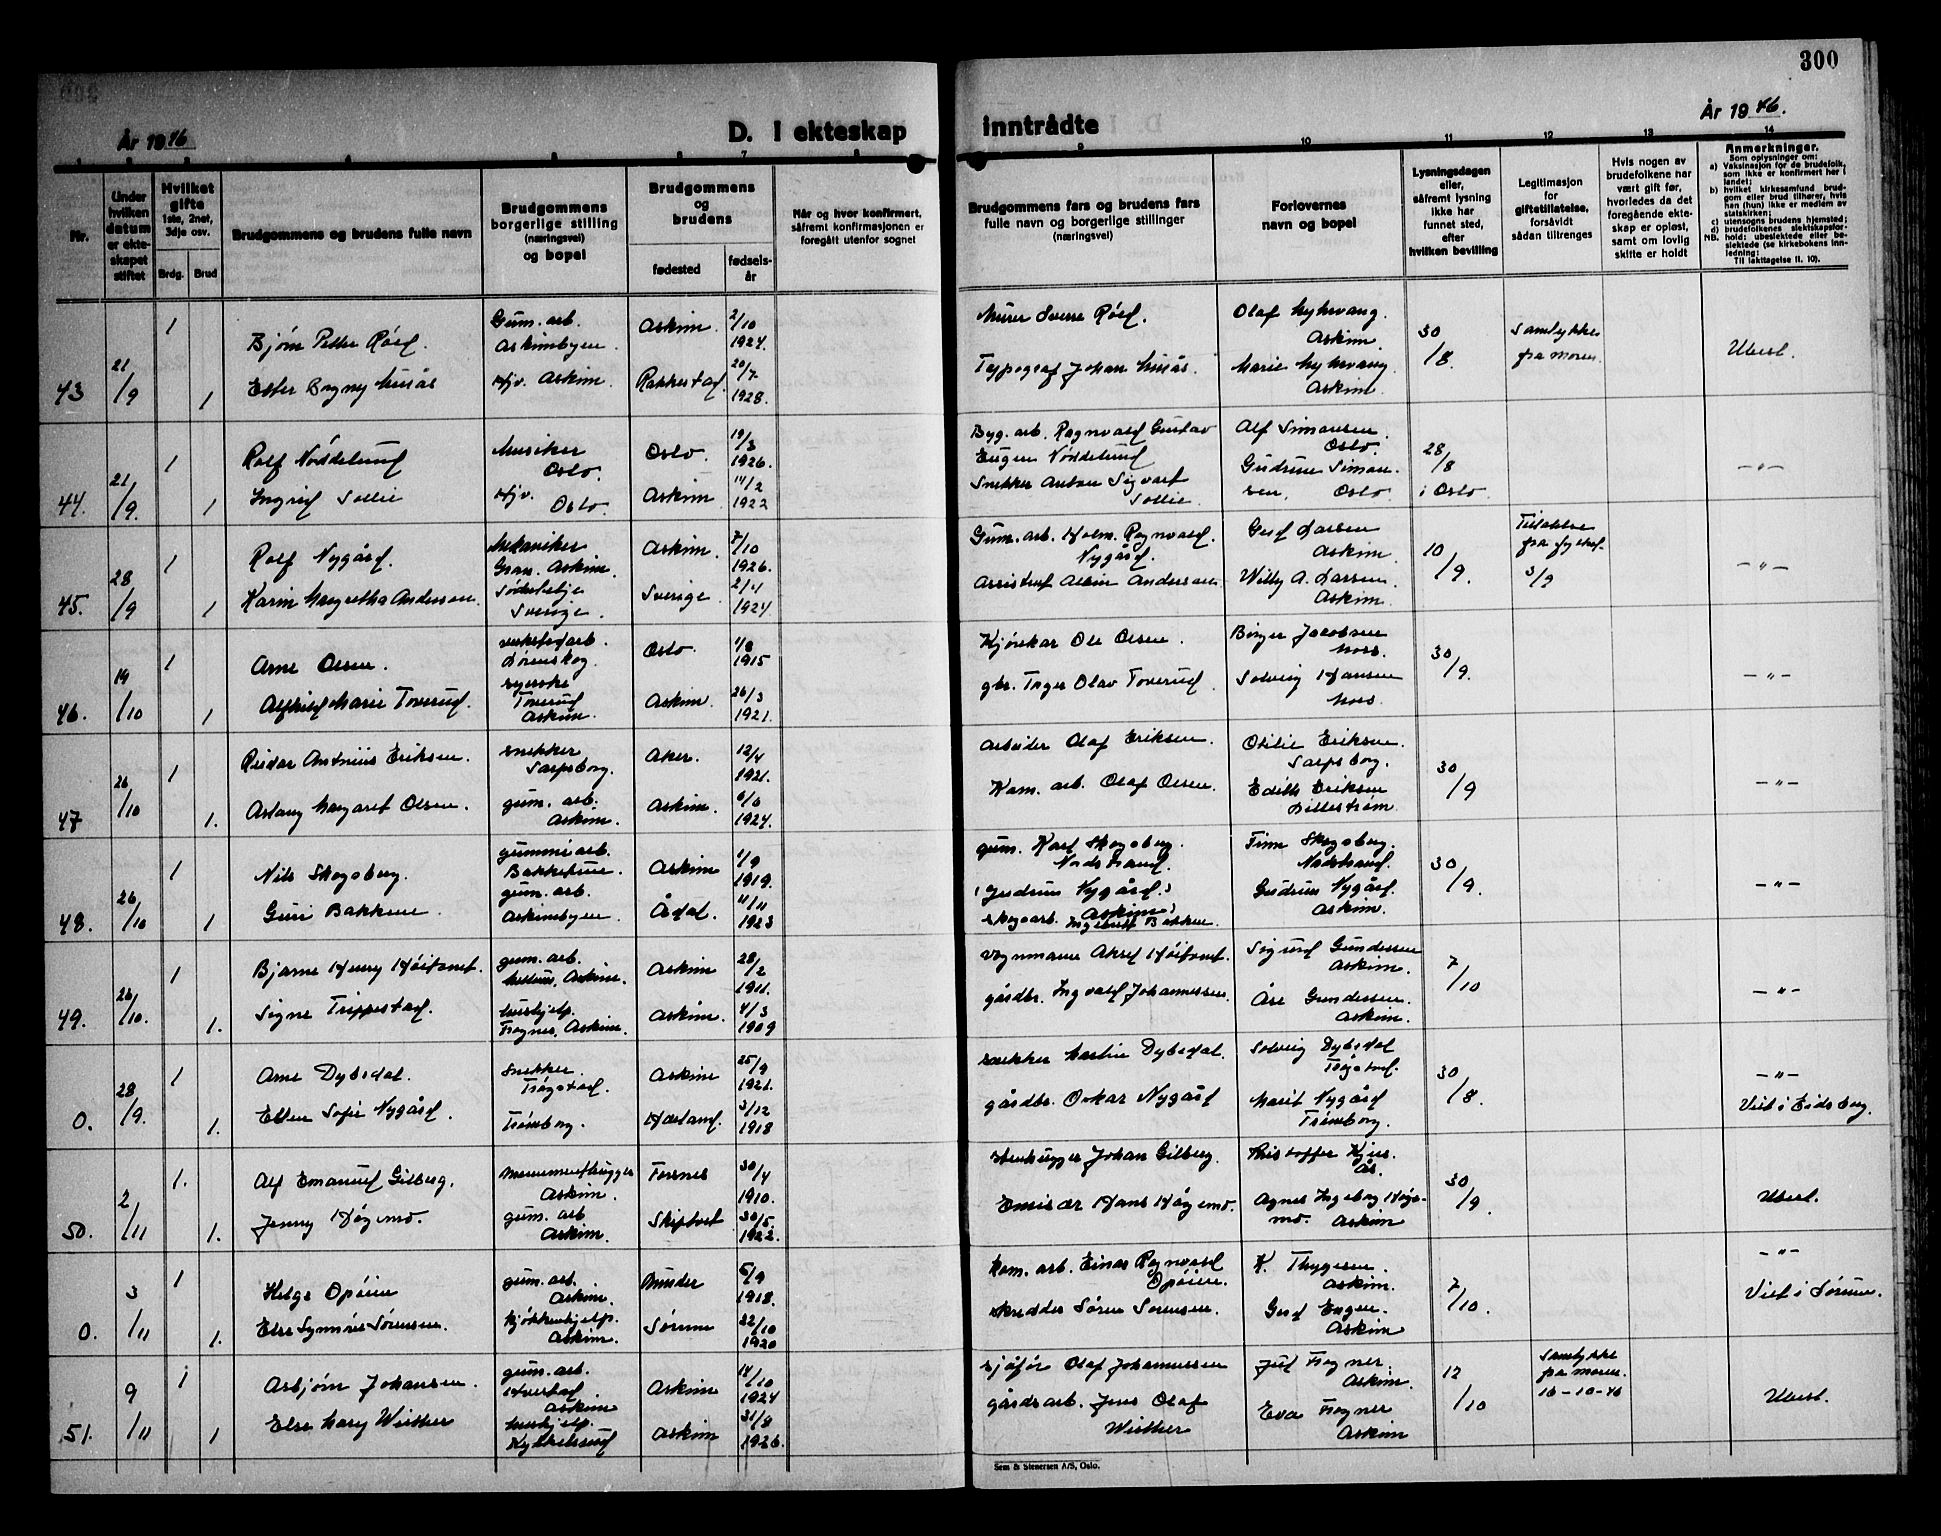 300
År 1946
D. I ekteskap
inntrådte
År 1946.
Nr.
Under hvilken datum er ekteskapet stiftet
Hvilket gifte
1ste, 2net, 3dje osv.
Brdg.
Brud
Brudgommens og brudens fulle navn
Brudgommens borgerlige stilling (næringsvei) og bopel
Brudgommens og brudens
fødested
fødselsår
Når og hvor konfirmert, såfremt konfirmasjonen er foregått utenfor sognet
Brudgommens fars og brudens fars fulle navn og borgerlige stillinger (næringsvei)
Forlovernes navn og bopel
Lysningsdagen eller, såfremt lysning ikke har funnet sted, efter hvilken bevilling
Legitimasjon for giftetillatelse, forsåvidt sådan tiltrenges
Hvis nogen av brudefolkene har vært gift før, hvorledes da det foregående ekteskap er opløst, samt om lovlig skifte er holdt
Anmerkninger.
Som oplysninger om:
a) Vaksinasjon for de brudefolk, som ikke er konfirmert her i landet;
b) hvilket kirkesamfund brudgom eller brud tilhører, hvis hen (hun) ikke er medlem av statskirken;
c) utensogns brudens hjemsted;
d) brudefolkenes slektskapsforhold: ubeslektede eller beslektede (se kirkebokens innledning:
NB. Til Iakttagelse II. 10).
43 21/9 1 Bjørn Petter Røed. Gum. arb. Askimbyen. Askim. 2/10 1924. Murer Sverre Røed. Olaf Myhrvang. Askim. 30/8. Samtykke fra moren. Ubesl.
1 Ester Bogny Musås Hjv. Askim. Rakkestad. 20/7 1928. Typograf Johan Musås. Marie Myhrvang Askim.
44. 21/9. 1 Rolf Nøddelund Musiker Oslo. Oslo. 19/3 1926. Byg. arb. Ragnvald Gustav Eugen Nøddelund Alf Simonsen. Oslo. 28/8 i Oslo. -"-
1 Ingrid Sollie Hjv. Oslo. Askim. 14/2 1922 Snekker Anton Sigvart Sollie. Gudrun Simonsen, Oslo.
45. 28/9 1 Rolf Nygård. Mekaniker Gran. Askim. Askim. 7/10 1926. Gum. arb. Holm. Ragnvald. Nygård. Gerd Larsen Askim. 10/9. 3/9 -"-
1 Karin Margretha Anderson. Sverige. Sverige. 2/4 1924 Albin Anderson Willy A. Larsen. Askim.
46. 19/10 1 Arne Olsen. verkstedarb. Lørenskog. Oslo. 1/8 1915 Kjørekar Ole Olsen. Børger Jacobsen Moss. 30/9. -"-
1 Alfhild Marie Toverud. syerske Toverud Askim. Askim. 26/3 1921. gbr. Inger Olav Toverud. Solveig Hansen Moss.
47 26/10 1 Reidar Antonius Eriksen. snekker Sarpsborg. Aker. 12/4 1921. Arbeider Olaf Eriksen. Otilie Eriksen. Sarpsborg. 30/9 -"-
1. Aslaug Margaret Olsen. gum. arb. Askim. Askim. 1924. Kom. arb. Olaf Olsen. Edith Eriksen Lillestrøm.
48. 26/10 1 Nils Skogsberg. gummiarb. Askim 1/9 1919. gum. Karl Skogsberg. Nordstrand. Finn Skogsberg. Nordstrand. 30/9. -"-
1 Guri Bakkene. gum. arb. Askimbyen. Ådal. 11/11 1923 (Gudrun Nygård. Askim) Skogsarb. Ingebrett Bakken Gudrun Nygård. Askim.
49. 26/10. 1 Bjarne Henry Høitomt. gum. arb. Askim. Askim 28/2 1911. Vognmann Aksel Høitomt. Sigurd Gundersen Askim. 7/10 -"-
1. Signe Trippestad. hushjelp. Frogner, Askim. Askim. 4/3 1909 gårdbr. Ingvald Johannessen. Åse Gundersen. Askim.
0. 28/9. 1 Arne Dybedal. Snekker. Trøgstad. Askim 25/9 1921. snekker Martin Dybedal. Solveig Dybedal Trøgstad. 30/8. -"-
1. Ellen Sofie Nygård. Trømborg. Hærland. 3/12 1918 gårdbr. Oskar Nygård Marit Nygård Trømborg. Viet i Eidsberg.
50. 2/11 1. Alf Emanuel Gilberg. Monumenthugger Askim. Torsnes 30/4 1910. Stenhugger Johan Gilberg. Kristoffer Kjusås. 30/9. Ubesl.
1. Jenny Høgemo. gum. arb Askim. Skiptvet 30/5. 1922. Emissær Hans Høgemo. Agnes Ingeborg Høgemo. Askim
0. 3/11 1 Helge Opøien gum. arb. Askim. 6/9 1918. Kom. arb. Einar Ragnvald Opøien. K. Thygesen. Askim. 7/10. -"-
1. Else Synnøve Sørensen. kjøkkenhjelp. Askim. Sørum 22/10 1920 skredder Søren Sørensen. Gerd Engen. Askim Viet i Sørum.
51. 9/11 1 Asbjørn Johansen. gum. arb. Askim Askim 14/10 1924 sjåfør Olaf Johannessen Juel Frogner. Askim. 12/10 Samtykke fra moren 10-10-46 Ubesl.
1 Else Mary Wisther hushjelp. Kykkelsrud Askim 31/8 1926. gårdsarb. Jens Olaf Wisther Eva Frogner Askim
Sem & Stenersen A/S, Oslo.